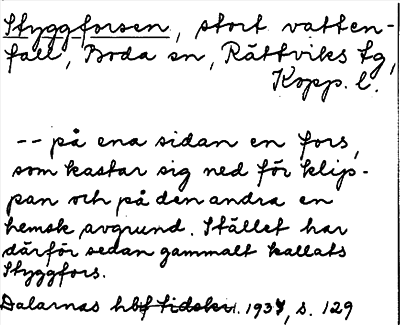 Styggforsen, stort vatten-
fall, Boda sn, Rättviks tg,
Kopp. l.
-- på ena sidan en fors,
som kastar sig ned för klip-
pan och på den andra en
hemsk avgrund. Stället har
därför sedan gammalt kallats
Styggfors.
Dalarnas hbf tidskr. 1937, s. 129